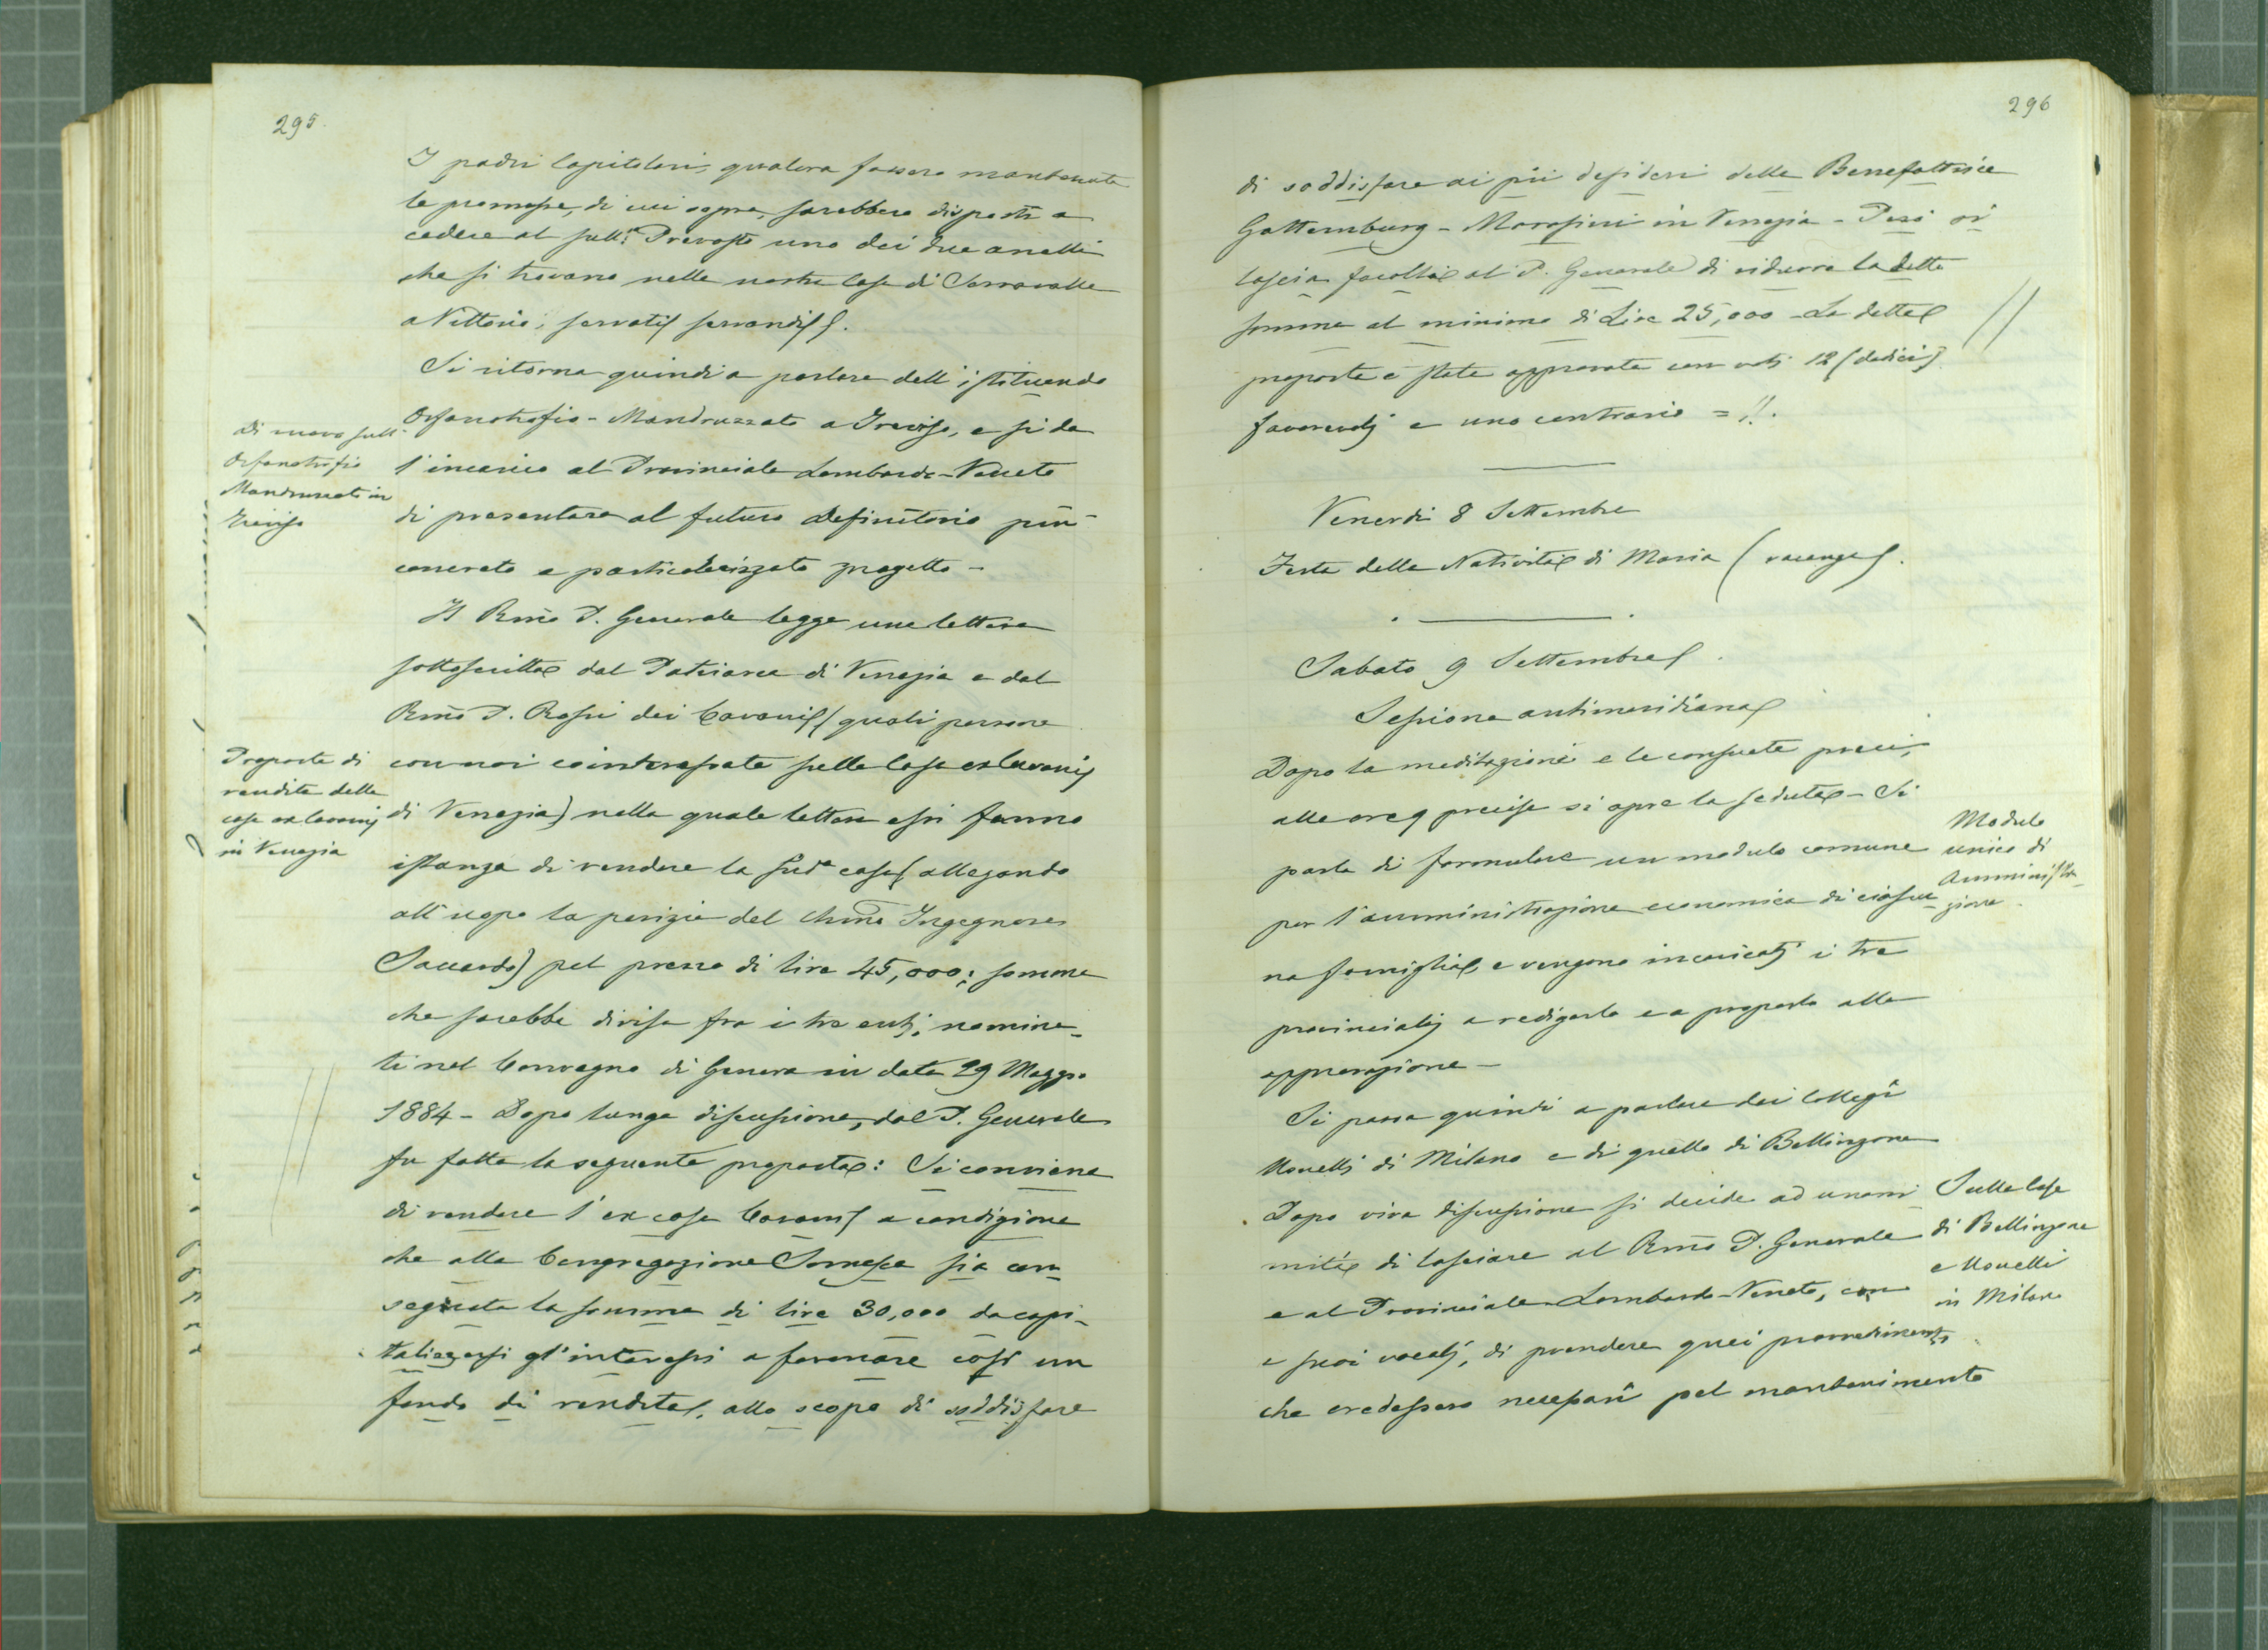 295
I padri Capitolari, qualora fossero mantenute
le promesse, di cui sopra, sarebbero disposti a
cedere al Prevosto uno dei due anelli
che si trovano nella nostra Casa di Serravalle
a Vittorio, servatis servandis.
Si ritorna quindi a parlare dell'istituendo
Di nuovo sull'
Orfanotrofio
Mandruzzato in
Treviso
Orfanotrofio-Mandruzzato a Treviso, e si da
l'incarico al Provinciale Lombardo-Veneto
di presentare al futuro Definitorio più
concreto e particolarizzato progetto -
Il Rmo P. Generale legge una lettera
sottoscritta dal Patriarca di Venezia e dal
Rmo P. Rossi dei Cavanis (quali persone
Proposta di
vendita della
casa ex Cavanis
in Venezia
con noi cointeressate sulla Casa ex Cavanis
di Venezia) nella quale lettera essi fanno
istanza di vendere la sudª casa (allegando
all'uopo la perizia del Chmo Ingegnere
Saccardo) pel prezzo di lire 45,000; somma
che sarebbe divisa fra i tre enti, nomina-
ti nel Convegno di Genova in data 29 Maggio
1884 - Dopo lunga discussione, dal P. Generale
fu fatta la seguente proposta: Si conviene
di vendere l'ex casa Cavanis a condizione
che alla Congregazione Somasca sia con-
segnata la somma di lire 30,000 da capi-
talizzarsi gl'interessi a formare così un
fondo di rendita, allo scopo di soddisfare
296
di soddisfare ai pii desideri della Benefattrice
Gattemburg - Morosini in Venezia - Però si
lascia facoltà al P. Generale di ridurre la detta
somma al minimo di Lire 25,000 - La detta
proposta è stata approvata con voti 12 (dodici)
favorevoli e uno contrario = !!.
Venerdì 8 Settembre
Festa della Natività di Maria (vacanza).
Sabato 9 Settembre.
Sessione antimeridiana
Dopo la meditazione e le consuete preci,
alle ore 9 precise si apre la seduta - Si
parla di formulare un modulo comune
per l'amministrazione economica di ciascu-
Modulo
unico di
Amministra-
zione.
na famiglia, e vengono incaricati i tre
provinciali a redigerlo e a proporlo alla
approvazione -
Si passa quindi a parlare dei Collegi
Usuelli di Milano e di quello di Bellinzona
Dopo viva discussione si decide ad unani
mità di lasciare al Rmo P. Generale
e al Provinciale Lombardo-Veneto, con
Sulle Case
di Bellinzona
e Usuelli
in Milano
i suoi vocali, di prendere quei provvedimenti
che credessero necessari pel mantenimento